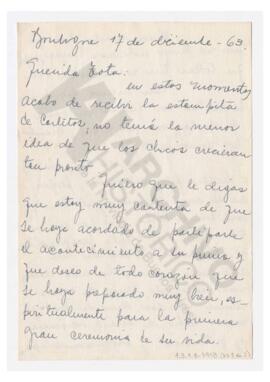 Boulogne 17 de diciembre - 63.
Querida Tota:
en estos momentos
acabo de recibir la estampita
de Carlitos; no tenía la menor
idea de que los chicos crecieran
tan pronto
Quiero que le digas
que estoy muy contenta de que
se haya acordado de participarle
el acontecimiento a su prima y
que deseo de todo corazón que
se haya preparado muy bien, es-
piritualmente para la primera
gran ceremonia de su vida.